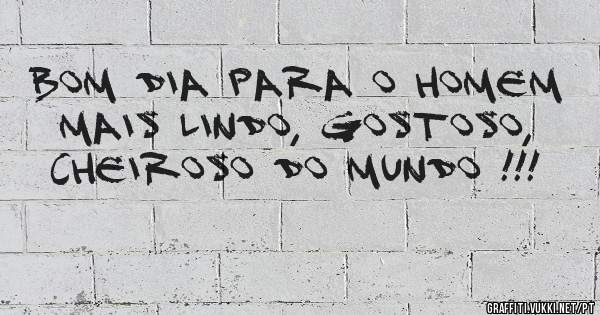 BOM DIA PARA O HOMEM
MAIS LINDO, GOSTOSO,
CHEIROSO DO MUNDO !!!
GRAFFITI.VUKKI.NET/PT